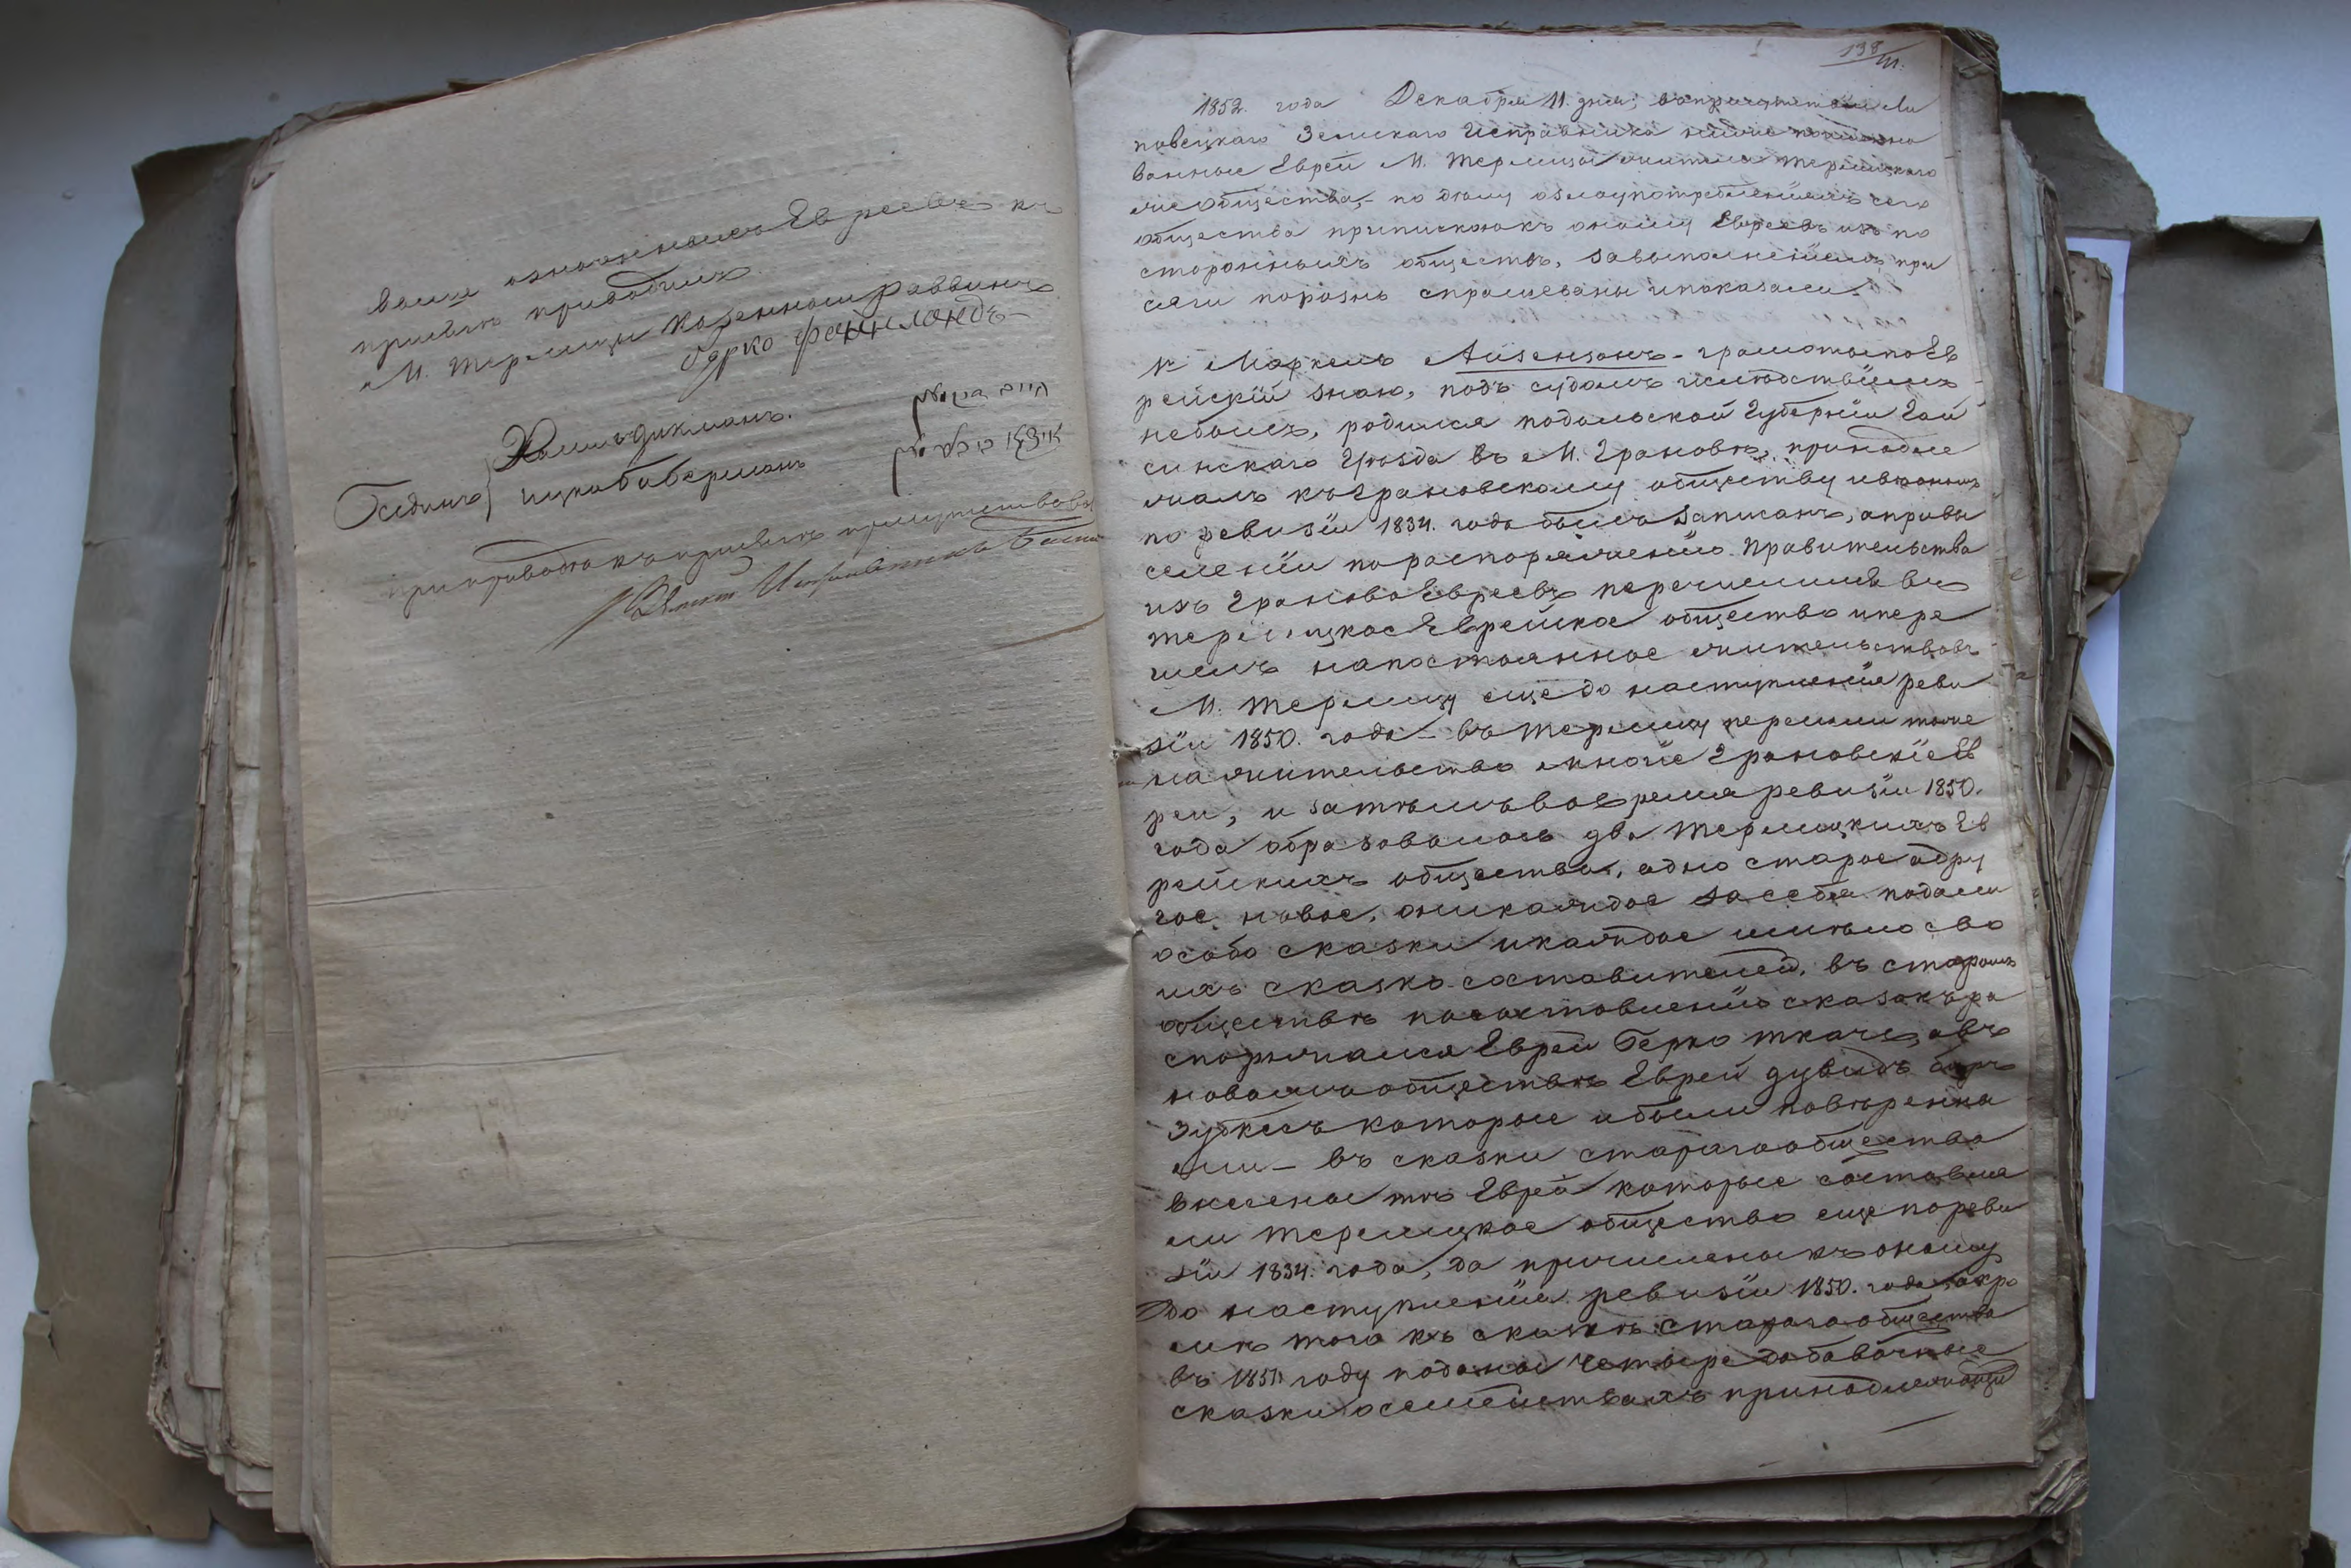 выше означенныхъ Евреевъ къ
присягѣ приводилъ
М. Терлицы Казенный раввинъ
Сѣдинъ
Ицко Бабберманъ
при приводѣ къ присягѣ присутствовалъ
Земскій Исправникъ
138
1852. года Декабря 11. дня; въ присутствіи Ли
повецкаго Земскаго Исправника ниже поимено
ванные Евреи М. Терлицы жители Терлицкаго
же общества, по дѣлу о злоупотребленіяхъ сего
общества припискою къ оному Евреевъ изъ по
стороннихъ обществъ, за выполненіемъ при
сяги порознь спрашеваны и показали.
1. Маркель Айзензонъ - грамоты по Ев
рейскій знаю, подъ судомъ и слѣдствіемъ
небылъ, родился Подольской Губерніи Гай
синскаго Уѣзда въ М. Грановѣ, принадле
жалъ къ Грановскому обществу и въ ономъ
по ревизіи 1834. года былъ записанъ, а при вы
селеніи по распоряженію Правительства
изъ Гранова Евреевъ перечислился въ
Терлицкое Еврейское общество и пере
шелъ на постоянное жительство въ
М. Терлицу еще до наступленія реви
зіи 1850. года - въ Терлицу перешли тоже
на жительство многіе Грановскіе Ев
реи, и затѣмъ во время ревизіи 1850.
года образовалось два Терлицкихъ Ев
рейскихъ общества, одно старое а дру
гое новое, они каждое за себя подали
особо сказки и каждое имѣло сво
ихъ сказко-составителей, въ старомъ
обществѣ по составленію сказокъ ра
споряжался Еврей Берко Ткачъ, а въ
новомъ обществѣ Еврей Дувидъ
Зубкесъ которые и были повѣренны
ми - въ сказки стараго общества
внесены тѣ Евреи которые составля
ли Терлицкое общество еще по реви
зіи 1834. года, да причислены къ оному
до наступленія ревизіи 1850. года, а кро
мѣ того къ сказкѣ стараго общества
въ 1851 году поданы четыре добавочные
сказки о семействахъ принадлежащи